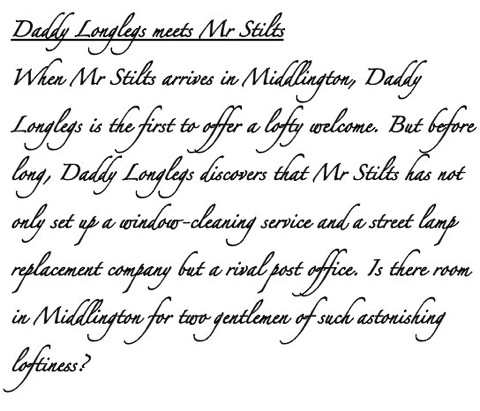 Daddy Longlegs meets Mr Stilts
When Mr Stilts arrives in Middlington, Daddy
Longlegs is the first to offer a lofty welcome. But before
long, Daddy Longlegs discovers that Mr Stilts has not
only set up a window-cleaning service and a street lamp
replacement company but a rival post office. Is there room
in Middlington for two gentlemen of such astonishing
loftiness?